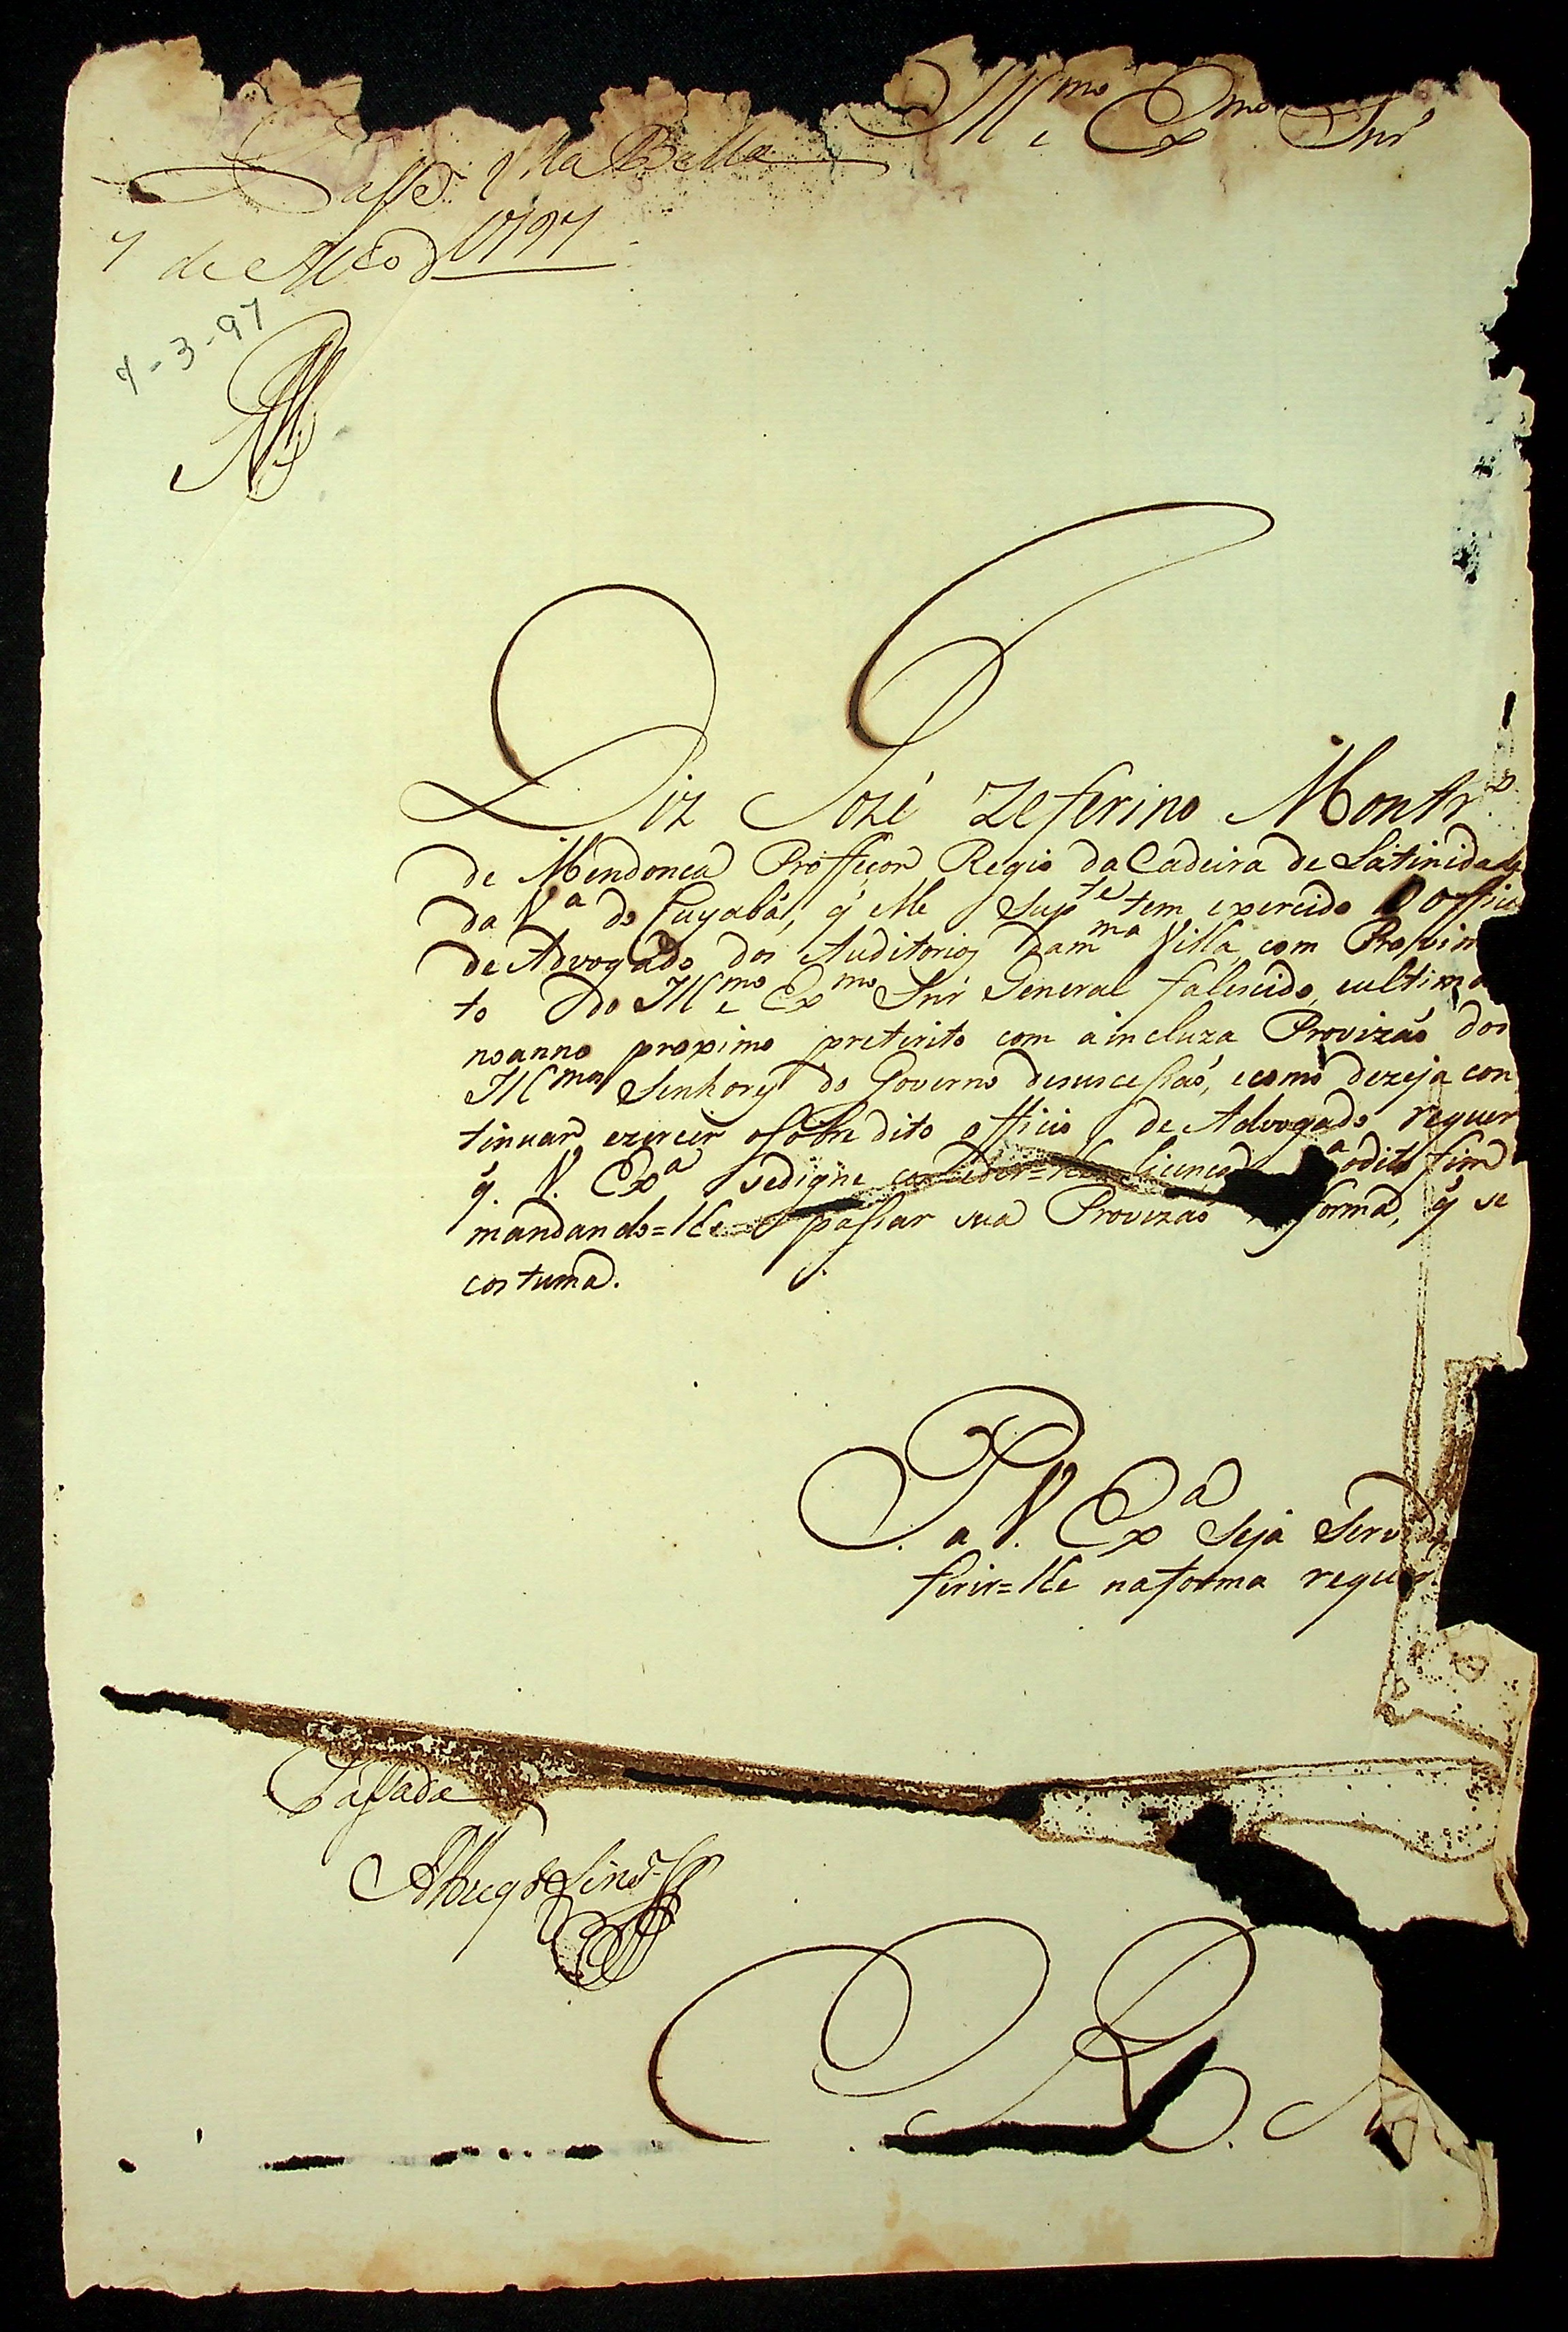 Ill.mo e Ex.mo Snr
Passe Villa Bella
7 de Mço d 1797
7-3-97
Diz Jozé Zeferino Montr.o
de Mendonca Proffeçor Regio da Cadeira de Latinidade
da V.a do Cuyabá, q̃ elle Sup.te tem exercido o officio
de Advogado dos Auditorios dam.ma Villa, com Provim
to do Ill.mo e Ex.mo Snr General falescido, eultima
noanno proximo preterito com aincluza Provizaõ dos
Ill.mos Senhores do Governo desucessaõ, ecomo dezeja con
tinuar exercer osobredito officio de Advogado requer
q̃. V. Ex.a sedigne conceder=lhe licença odito fim
mandando=lhe passar sua Provizaõ forma, q̃ se
costuma.
P. a V. Ex.a Seja Servid
ferir=lhe naforma requer
Passada
R. M.